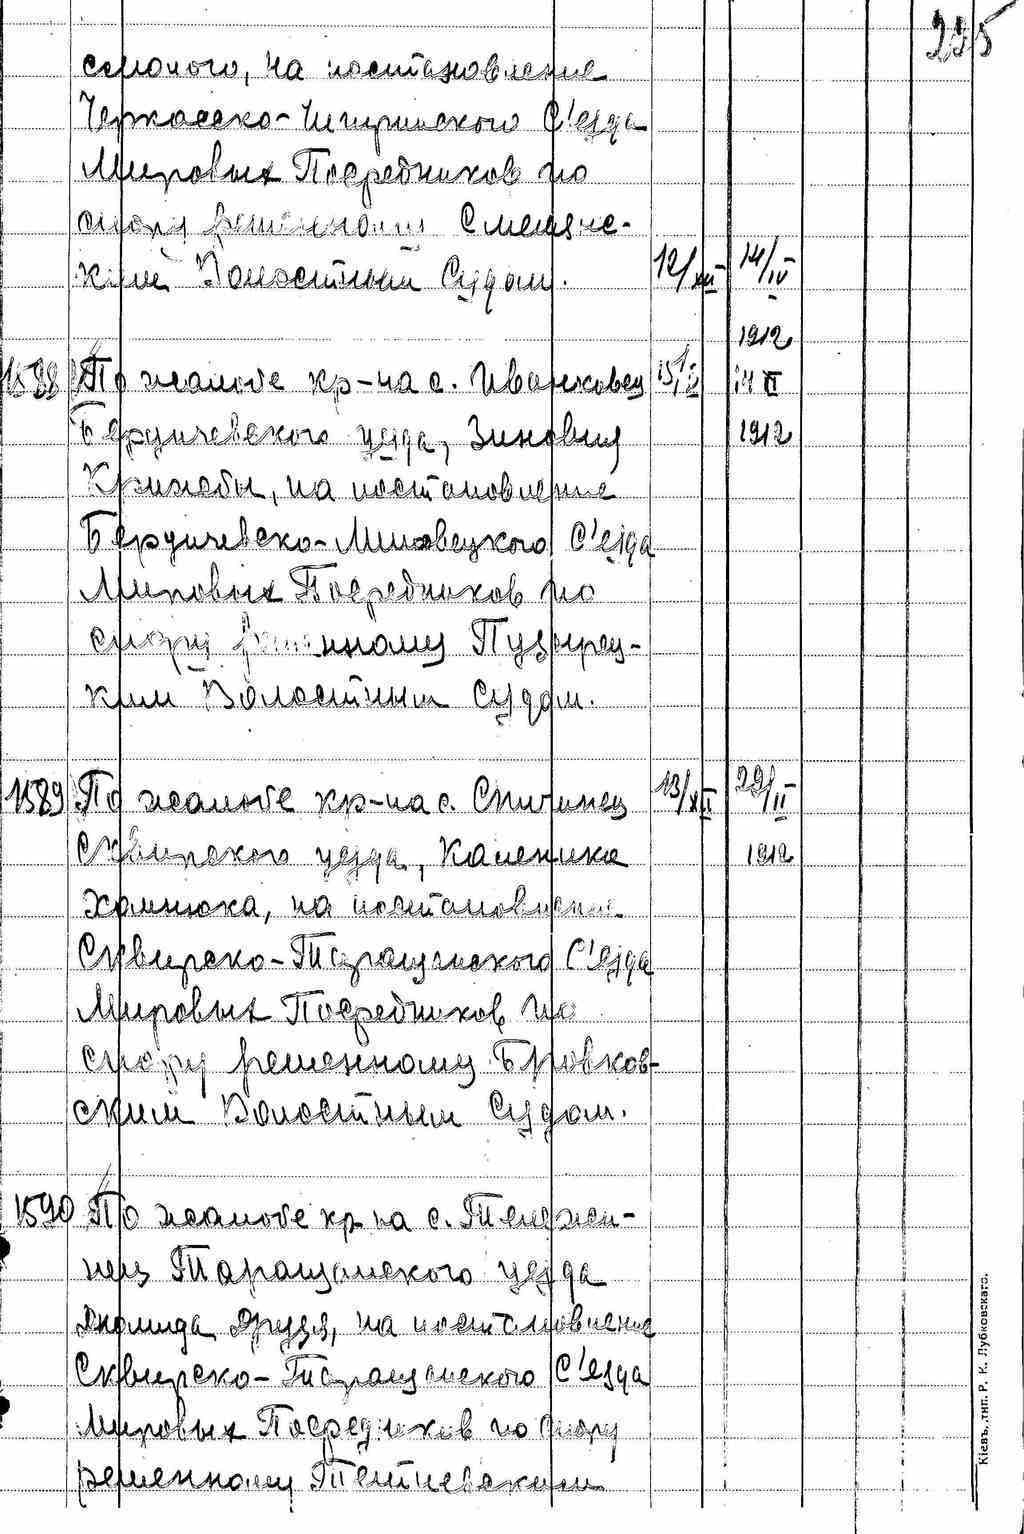 235
самого, на постановление
Черкасско-Чигиринского С'езда
Мировых Посредников по
спору решенному Смелянс-
ким Волостным Судом. 12/XII 14/IV
1912
1588 По жалобе кр-на с. Иванковец 14 II
Бердичевского уезда, Зиновия 1912
на постановление
Бердичевско-Липовецкого С'езда
Мировых Посредников по
спору решенному Пузырец-
ким Волостным Судом.
1589 По жалобе кр-на с. Спичинец 13/XII 29/II
Сквирского уезда, Каленика 1912
Хомнюка, на постановление
Сквирско-Таращанского С'езда
Мировых Посредников по
спору решенному Бровков-
ским Волостным Судом.
1590 По жалобе кр-на с. Тележи-
нец Таращанского уезда
Диомида Друзя, на постановление
Сквирско-Таращанского С'езда
Мировых Посредников по спору
решенному Тетиевским
Кіевъ, тип. Р. К. Лубковскаго.